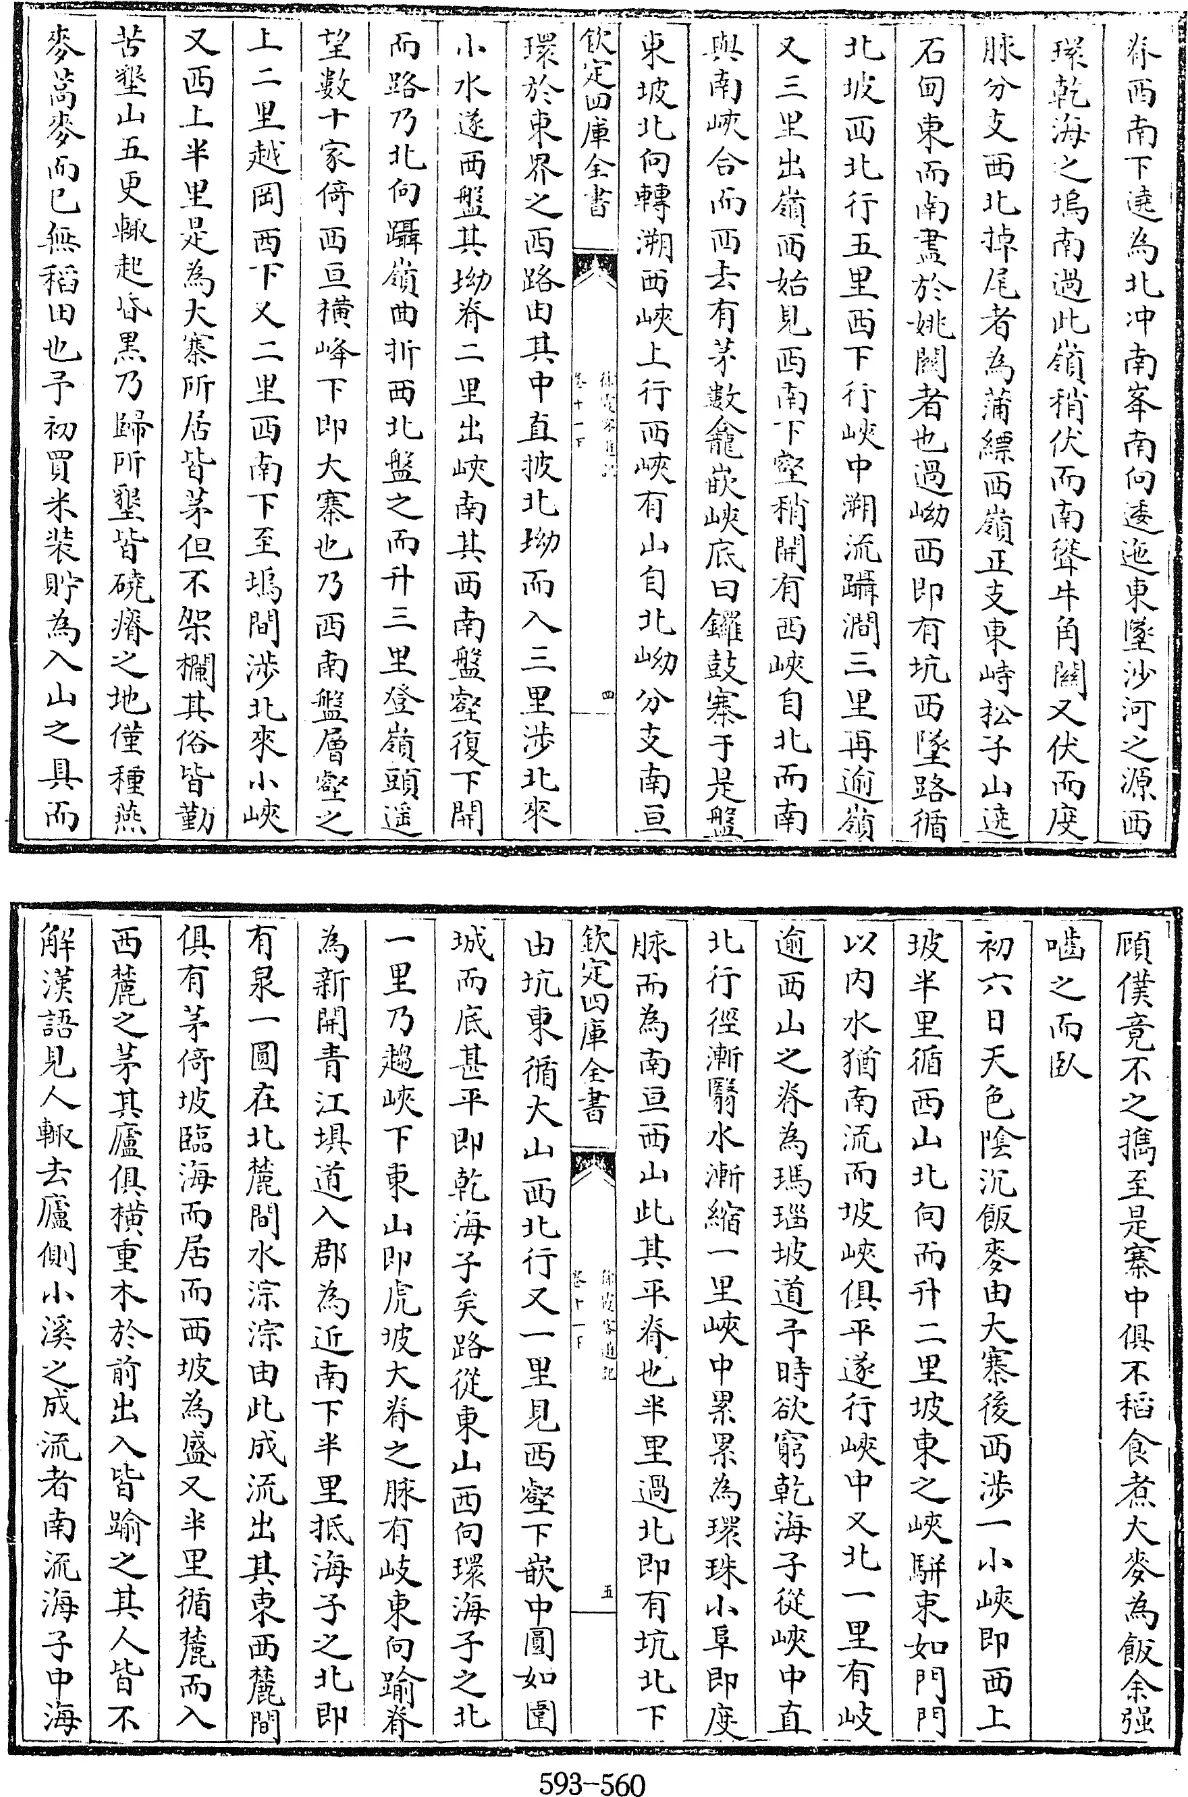 脊西南下遶為北冲南峯南向逶迤東墜沙河之源西
環乾海之塢南過此嶺稍伏而南聳牛角關又伏而度
脉分支西北掉尾者為蒲縹西嶺正支東峙松子山遶
石甸東而南盡於姚關者也過坳西即有坑西墜路循
北坡西北行五里西下行峽中溯流躡澗三里再逾嶺
又三里出嶺西始見西南下壑稍開有西峽自北而南
與南峽合而西去有茅數龕嵌峽底曰鑼鼓寨于是盤
東坡北向轉溯西峽上行西峽有山自北坳分支南亘
欽定四庫全書
徐霞客遊記
卷十一下
四
環於東界之西路由其中直披北坳而入三里涉北來
小水遂西盤其坳脊二里出峽南其西南盤壑復下開
而路乃北向躡嶺曲折西北盤之而升三里登嶺頭遥
望數十家倚西亘橫峰下即大寨也乃西南盤層壑之
上二里越岡西下又二里西南下至塢間涉北來小峽
又西上半里是為大寨所居皆茅但不架欄其俗皆勤
苦墾山五更輙起昏黑乃歸所墾皆磽瘠之地僅種燕
麥蒿麥而已無稻田也予初買米裝貯為入山之具而
顧僕竟不之擕至是寨中俱不稻食煮大麥為飯余强
嚙之而臥
初六日天色陰沉飯麥由大寨後西涉一小峽即西上
坡半里循西山北向而升二里坡東之峽駢束如門門
以內水猶南流而坡峽俱平遂行峽中又北一里有岐
逾西山之脊為瑪瑙坡道予時欲窮乾海子從峽中直
北行徑漸翳水漸縮一里峽中累累為環珠小阜即度
脉而為南亘西山此其平脊也半里過北即有坑北下
欽定四庫全書
徐霞客遊記
卷十一下
五
由坑東循大山西北行又一里見西壑下嵌中圓如圍
城而底甚平即乾海子矣路從東山西向環海子之北
一里乃趨峽下東山即虎坡大脊之脉有岐東向踰脊
為新開青江壩道入郡為近南下半里抵海子之北即
有泉一圓在北麓間水淙淙由此成流出其東西麓間
俱有茅倚坡臨海而居而西坡為盛又半里循麓而入
西麓之茅其廬俱橫重木於前出入皆踰之其人皆不
解漢語見人輙去廬側小溪之成流者南流海子中海
593-560